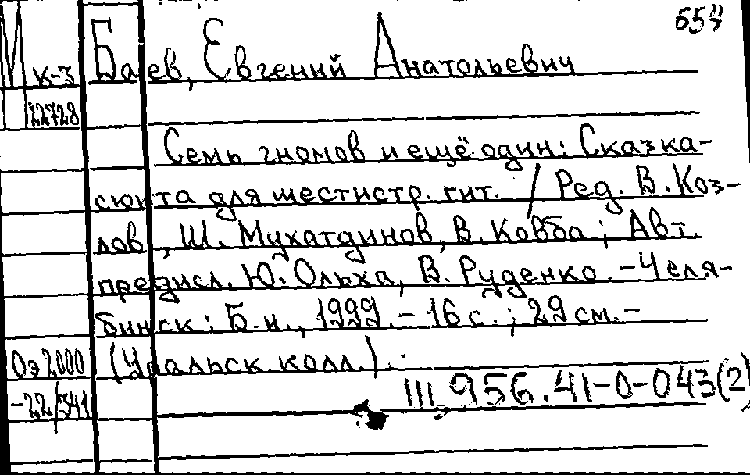 653
М к-3 Баев, Евгений Анатольевич
22728
Семь гномов и ещё один: Сказка-
сюита для шестистр. гит. / Ред. В. Коз-
лов, Ш. Мухатдинов, В. Ковба; Авт.
предисл. Ю. Ольха, В. Руденко. - Челя-
бинск: Б.и., 1999. - 16 с.; 29 см. -
Оэ 2000 (Уральск колл.).
-22/341 Ш 956.41-0-043(2)